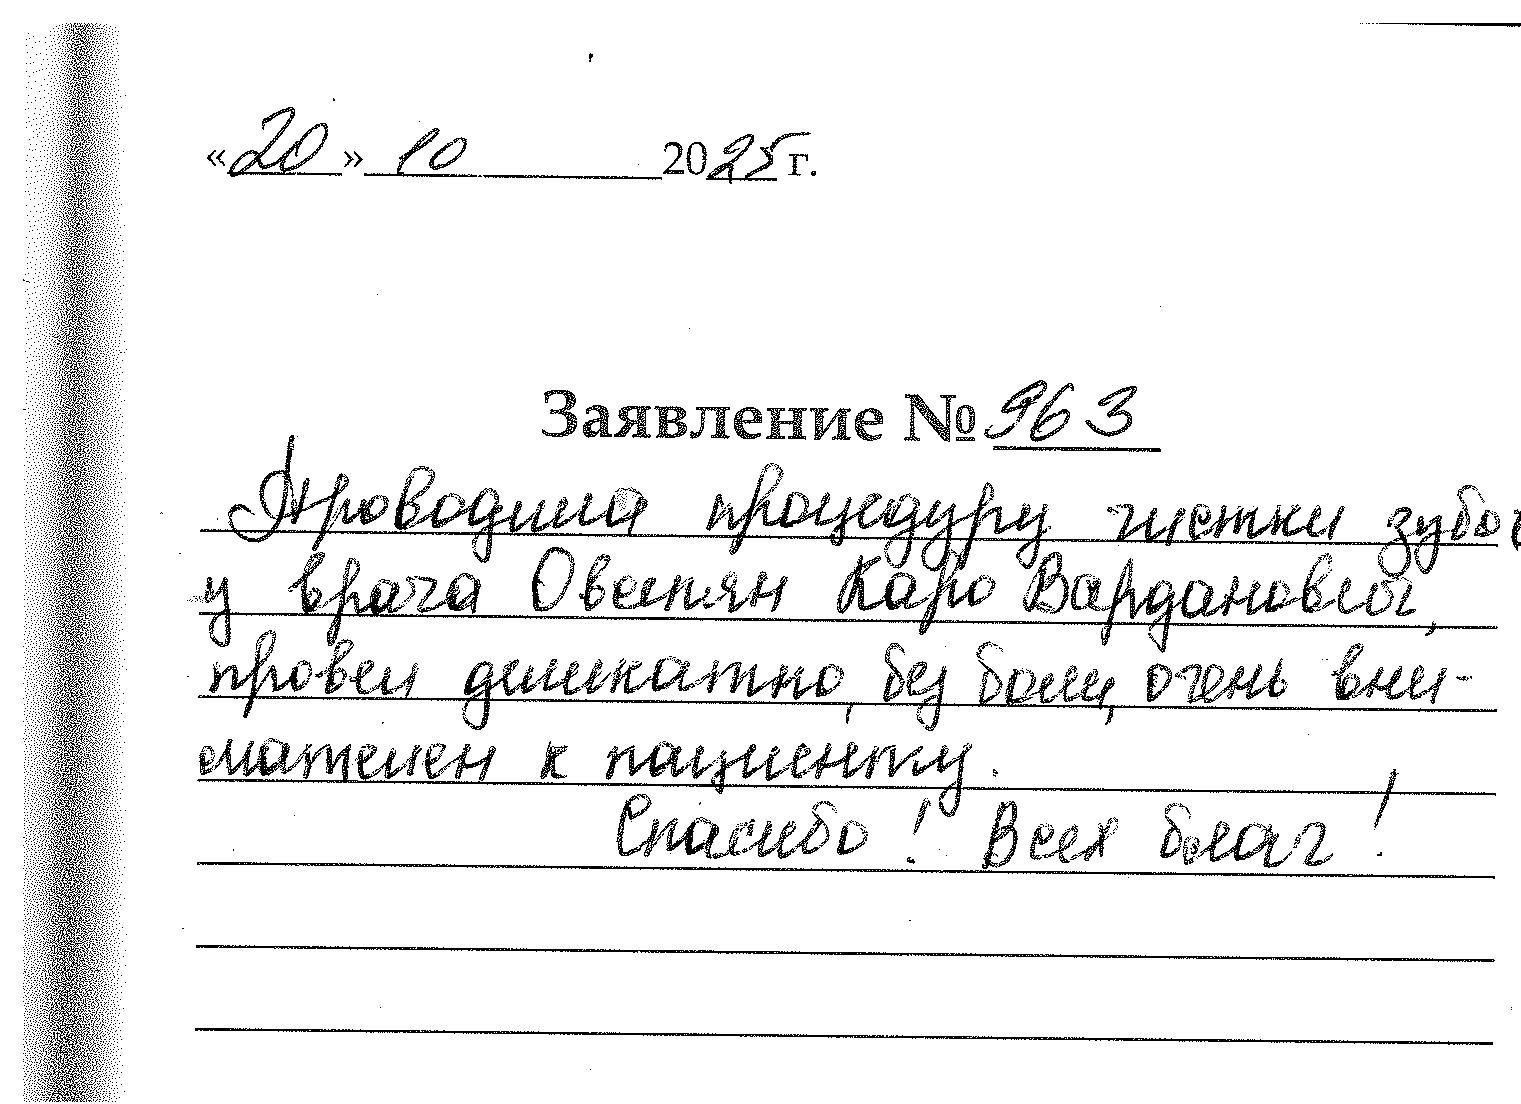 «20» 10 2025 г.
Заявление № 963
Проводила процедуру чистки зубов
у врача Овсепян Каро Вардановог,
провел деликатно, без боли, очень вни-
мателен к пациенту.
Спасибо! Всех благ!